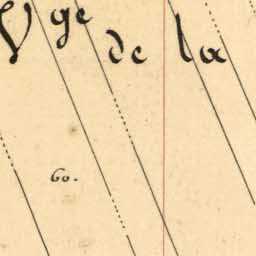 Vge de la
60.